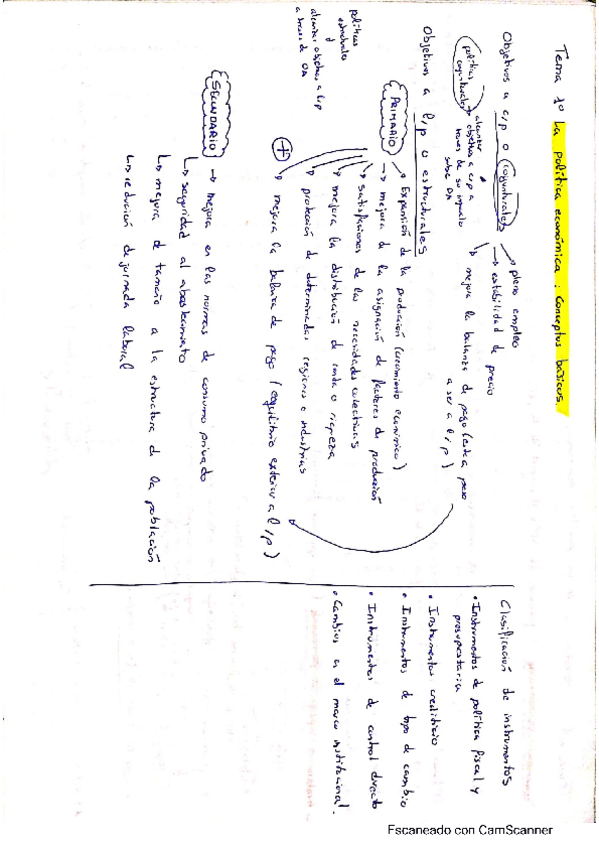 Tema 1º La política económica: Conceptos básicos.
Objetivos a c/p o coyunturales
→ pleno empleo
→ estabilidad de precio
→ mejora la balanza de pago (este a paso
a ser a l/p)
políticas
coyunturales
alcanzar
objetivos a c/p a
traves de su impacto
sobre DA
Objetivos a l/p o estructurales
políticas
estructurales
alcanzar objetivos a l/p
a traves de OA
PRIMARIO
→ Expansión de la producción (crecimiento económico)
→ mejora de la asignación de factores de producción
→ satisfacciones de las necesidades colectivas
→ mejora la distribución de renta o riqueza
→ protección de determinadas regiones o industrias
+ → mejora la balanza de pago (equilibrio exterior a l/p)
SECUNDARIO
→ mejora en las normas de consumo privado
→ seguridad al abastecimiento
→ mejora d tamaño a la estructura d la población
→ reducción de jornada laboral
Clasificación de instrumentos
• Instrumentos de política fiscal y
presupuestaria
• Instrumentos crediticio
• Instrumentos de tipo de cambio
• Instrumentos de control directo
• Cambios a el marco institucional.
Escaneado con CamScanner